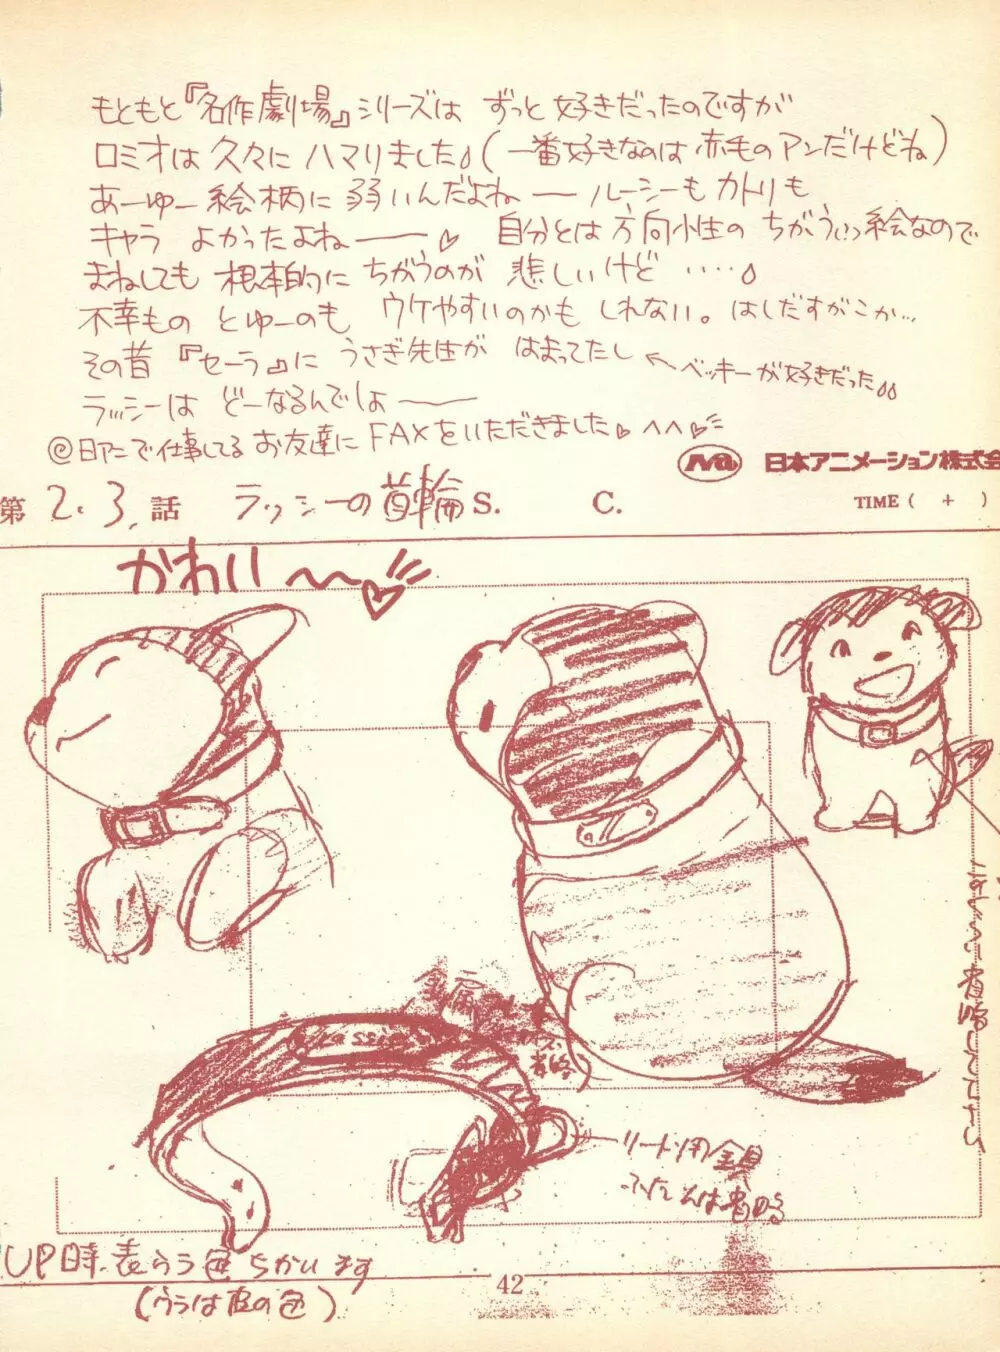 もともと『名作劇場』シリーズは ずっと好きだったのですが
ロミオは久々にハマりました。(一番好きなのは赤毛のアンだけどね)
あーゆー絵柄に弱いんだよねー ルーシーもカトリも
キャラ よかったよねー♡ 自分とは方向性の ちがうっつ絵なので
まねしても 根本的に ちがうのが 悲しいけど ‥‥。
不幸もの とゆーのも ウケやすいのかも しれない。はしだすがこか…
その昔『セーラ』に うさぎ先生が はまってたし ←ベッキーが好きだった。
ラッシーは どーなるんでしょー
@日アニで仕事してる お友達に FAXをいただきました♡ ^^♡
日本アニメーション株式会
第 2.3. 話 ラッシーの首輪 S. C. TIME ( + )
かわい~~♡
金属
省略
LASSIE
リード用金具
ふだんは省略
省略して下さい
UP時、表うら色ちがいます
(ウラは皮の色)
42